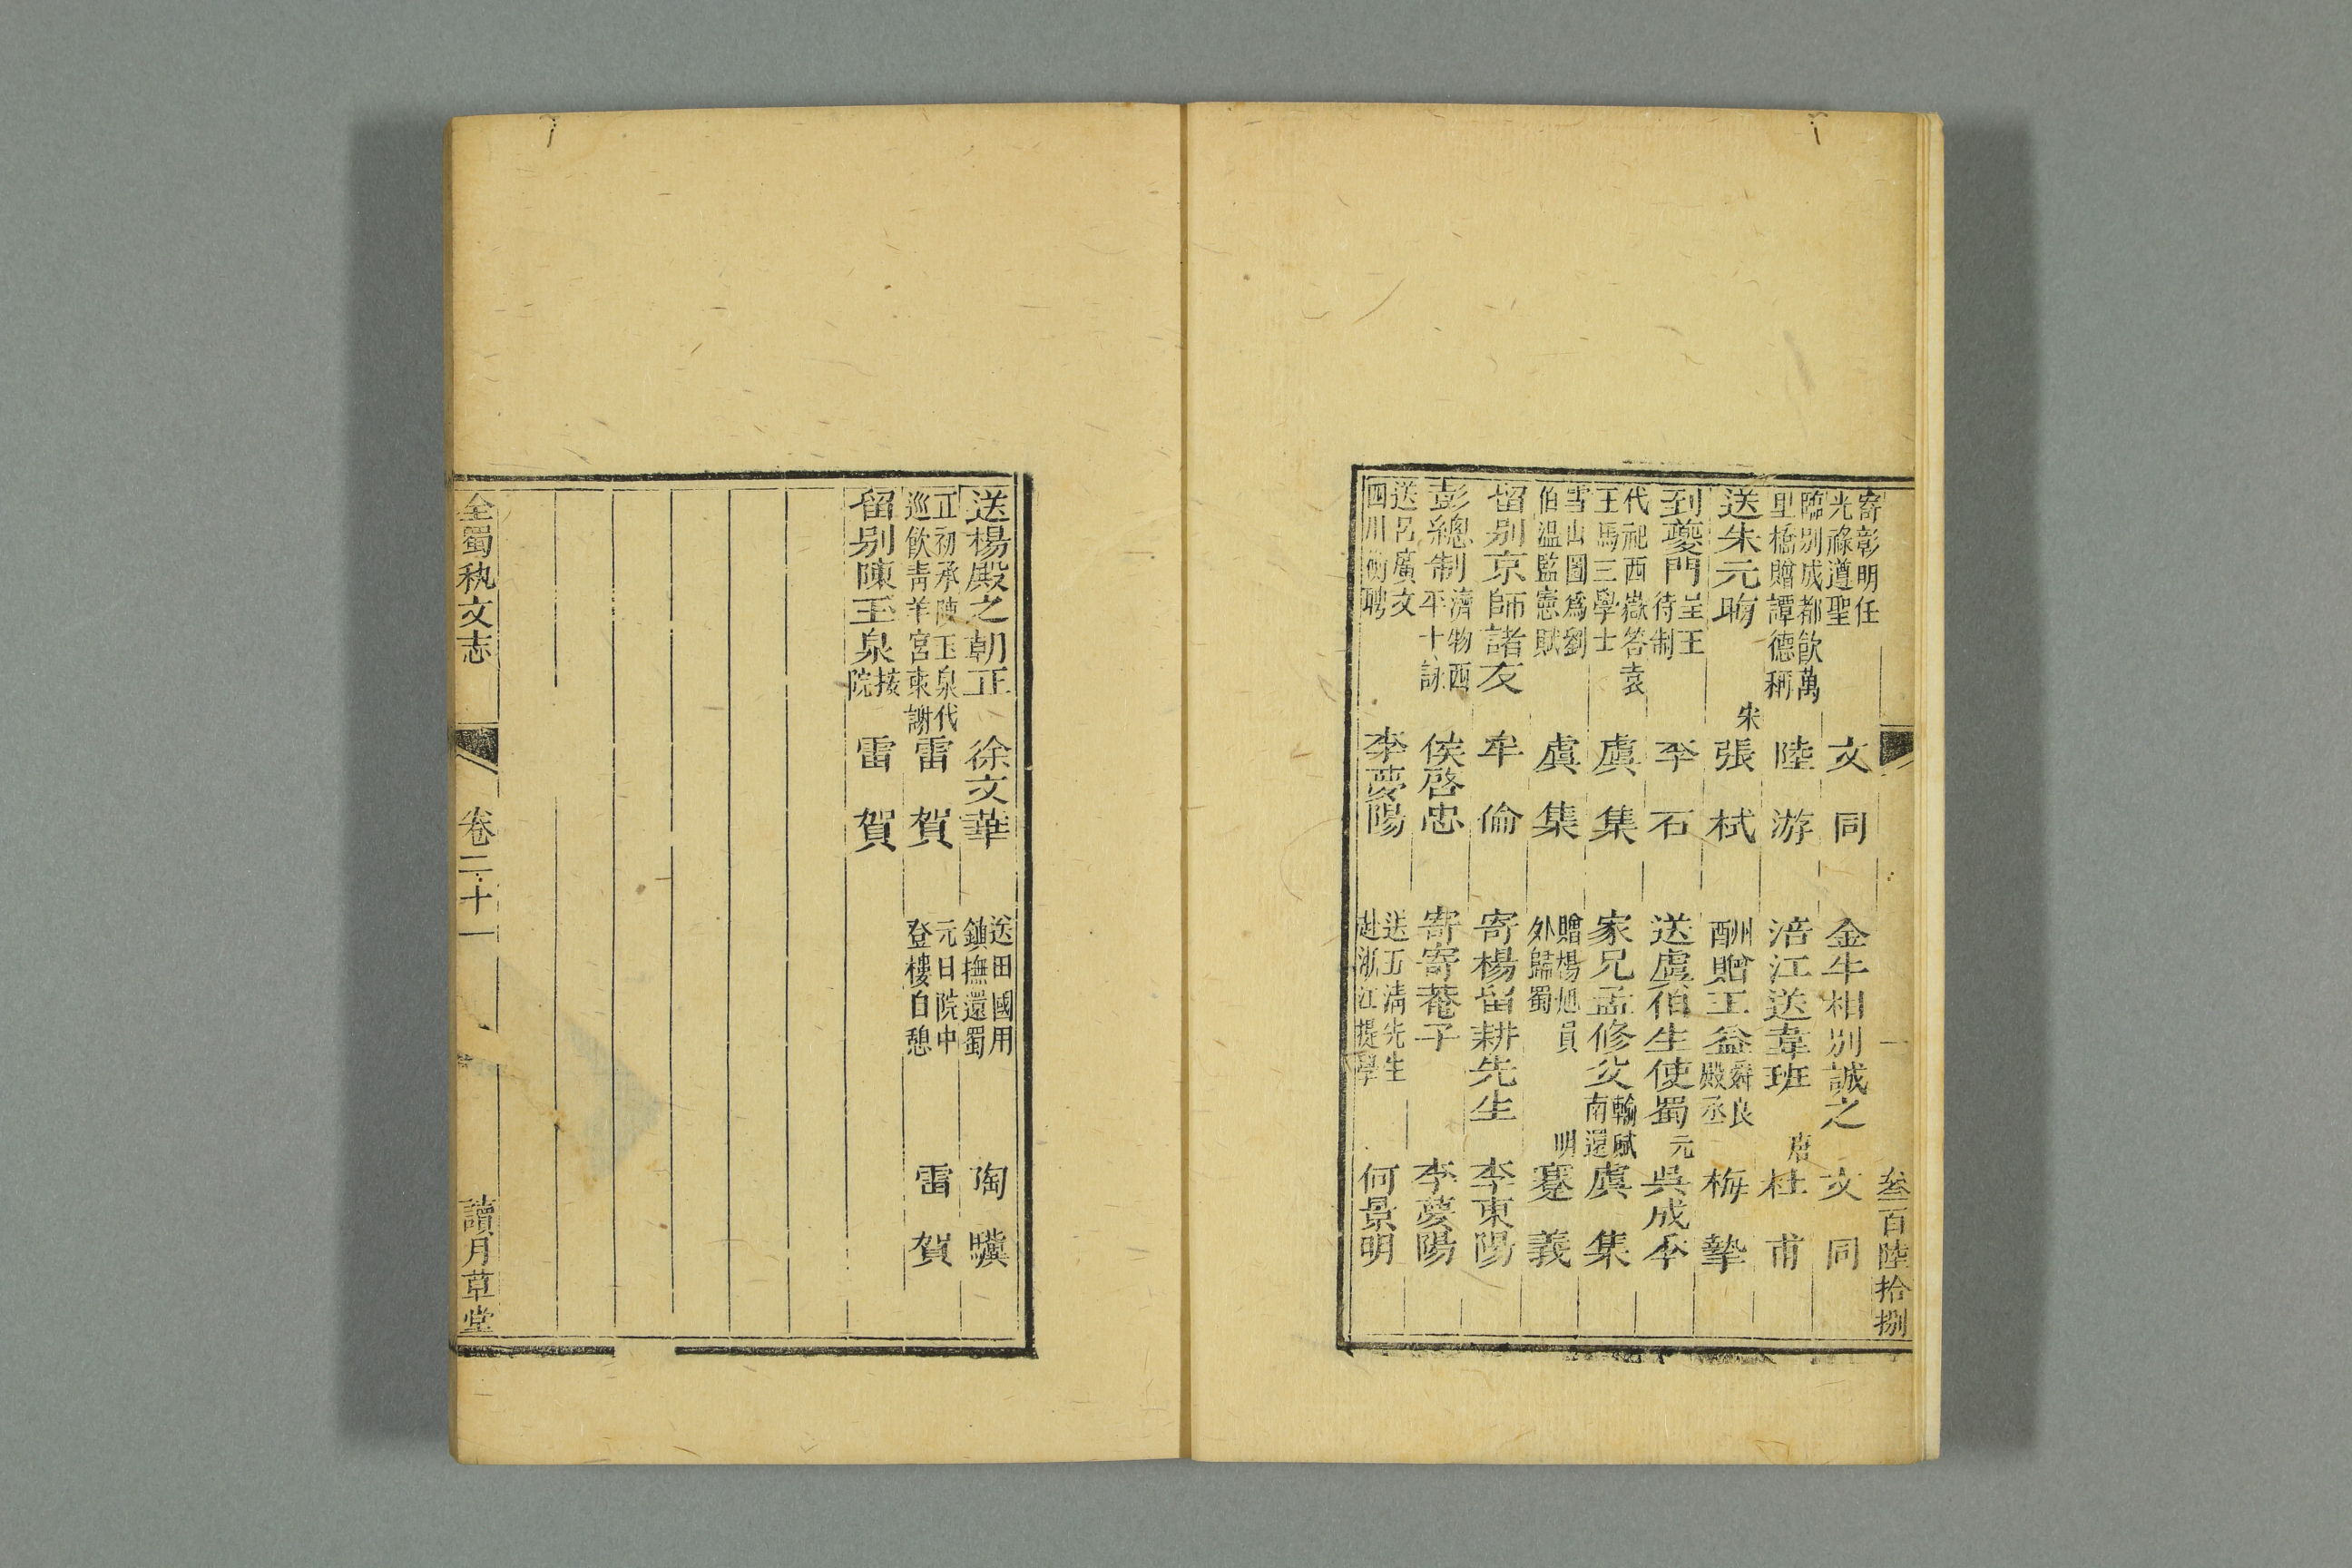 叁百陸拾捌
寄彰明任光祿遵聖 文同 金牛相別誠之 文同
臨別成都歆萬里橋贈譚德稱 陸游 涪江送韋班 唐杜甫
送朱元晦 宋張栻 酬贈王益舜良殿丞 梅摯
到夔門呈王待制 李石 送虞伯生使蜀 元吳成季
代祀西嶽答袁王馬三學士 虞集 家兄孟修父輸賦南還 虞集
雪山圖為劉伯溫監憲賦 虞集 贈楊旭員外歸蜀 明蹇義
留別京師諸友 牟倫 寄楊留耕先生 李東陽
彭總制濟物西平十詠 侯啓忠 寄寄菴子 李夢陽
送呂廣文四川衡聘 李夢陽 送五清先生赴浙江提學 何景明
送楊殿之朝正 徐文華 送田國用鎮撫還蜀 陶驥
正初承陳玉泉代巡飲青羊宮柬謝 雷賀 元日院中登樓白憩 雷賀
留別陳玉泉按院 雷賀
全蜀秇文志 卷二十一 讀月草堂